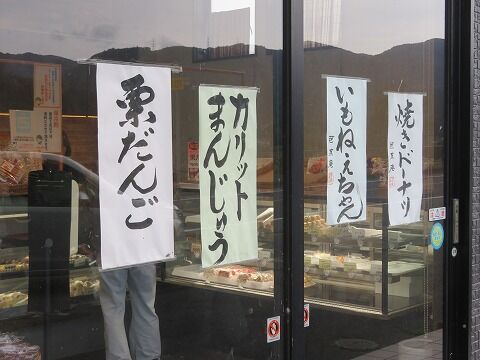 栗だんご
カリット
まんじゅう
いもねぇちゃん
焼きドーナツ